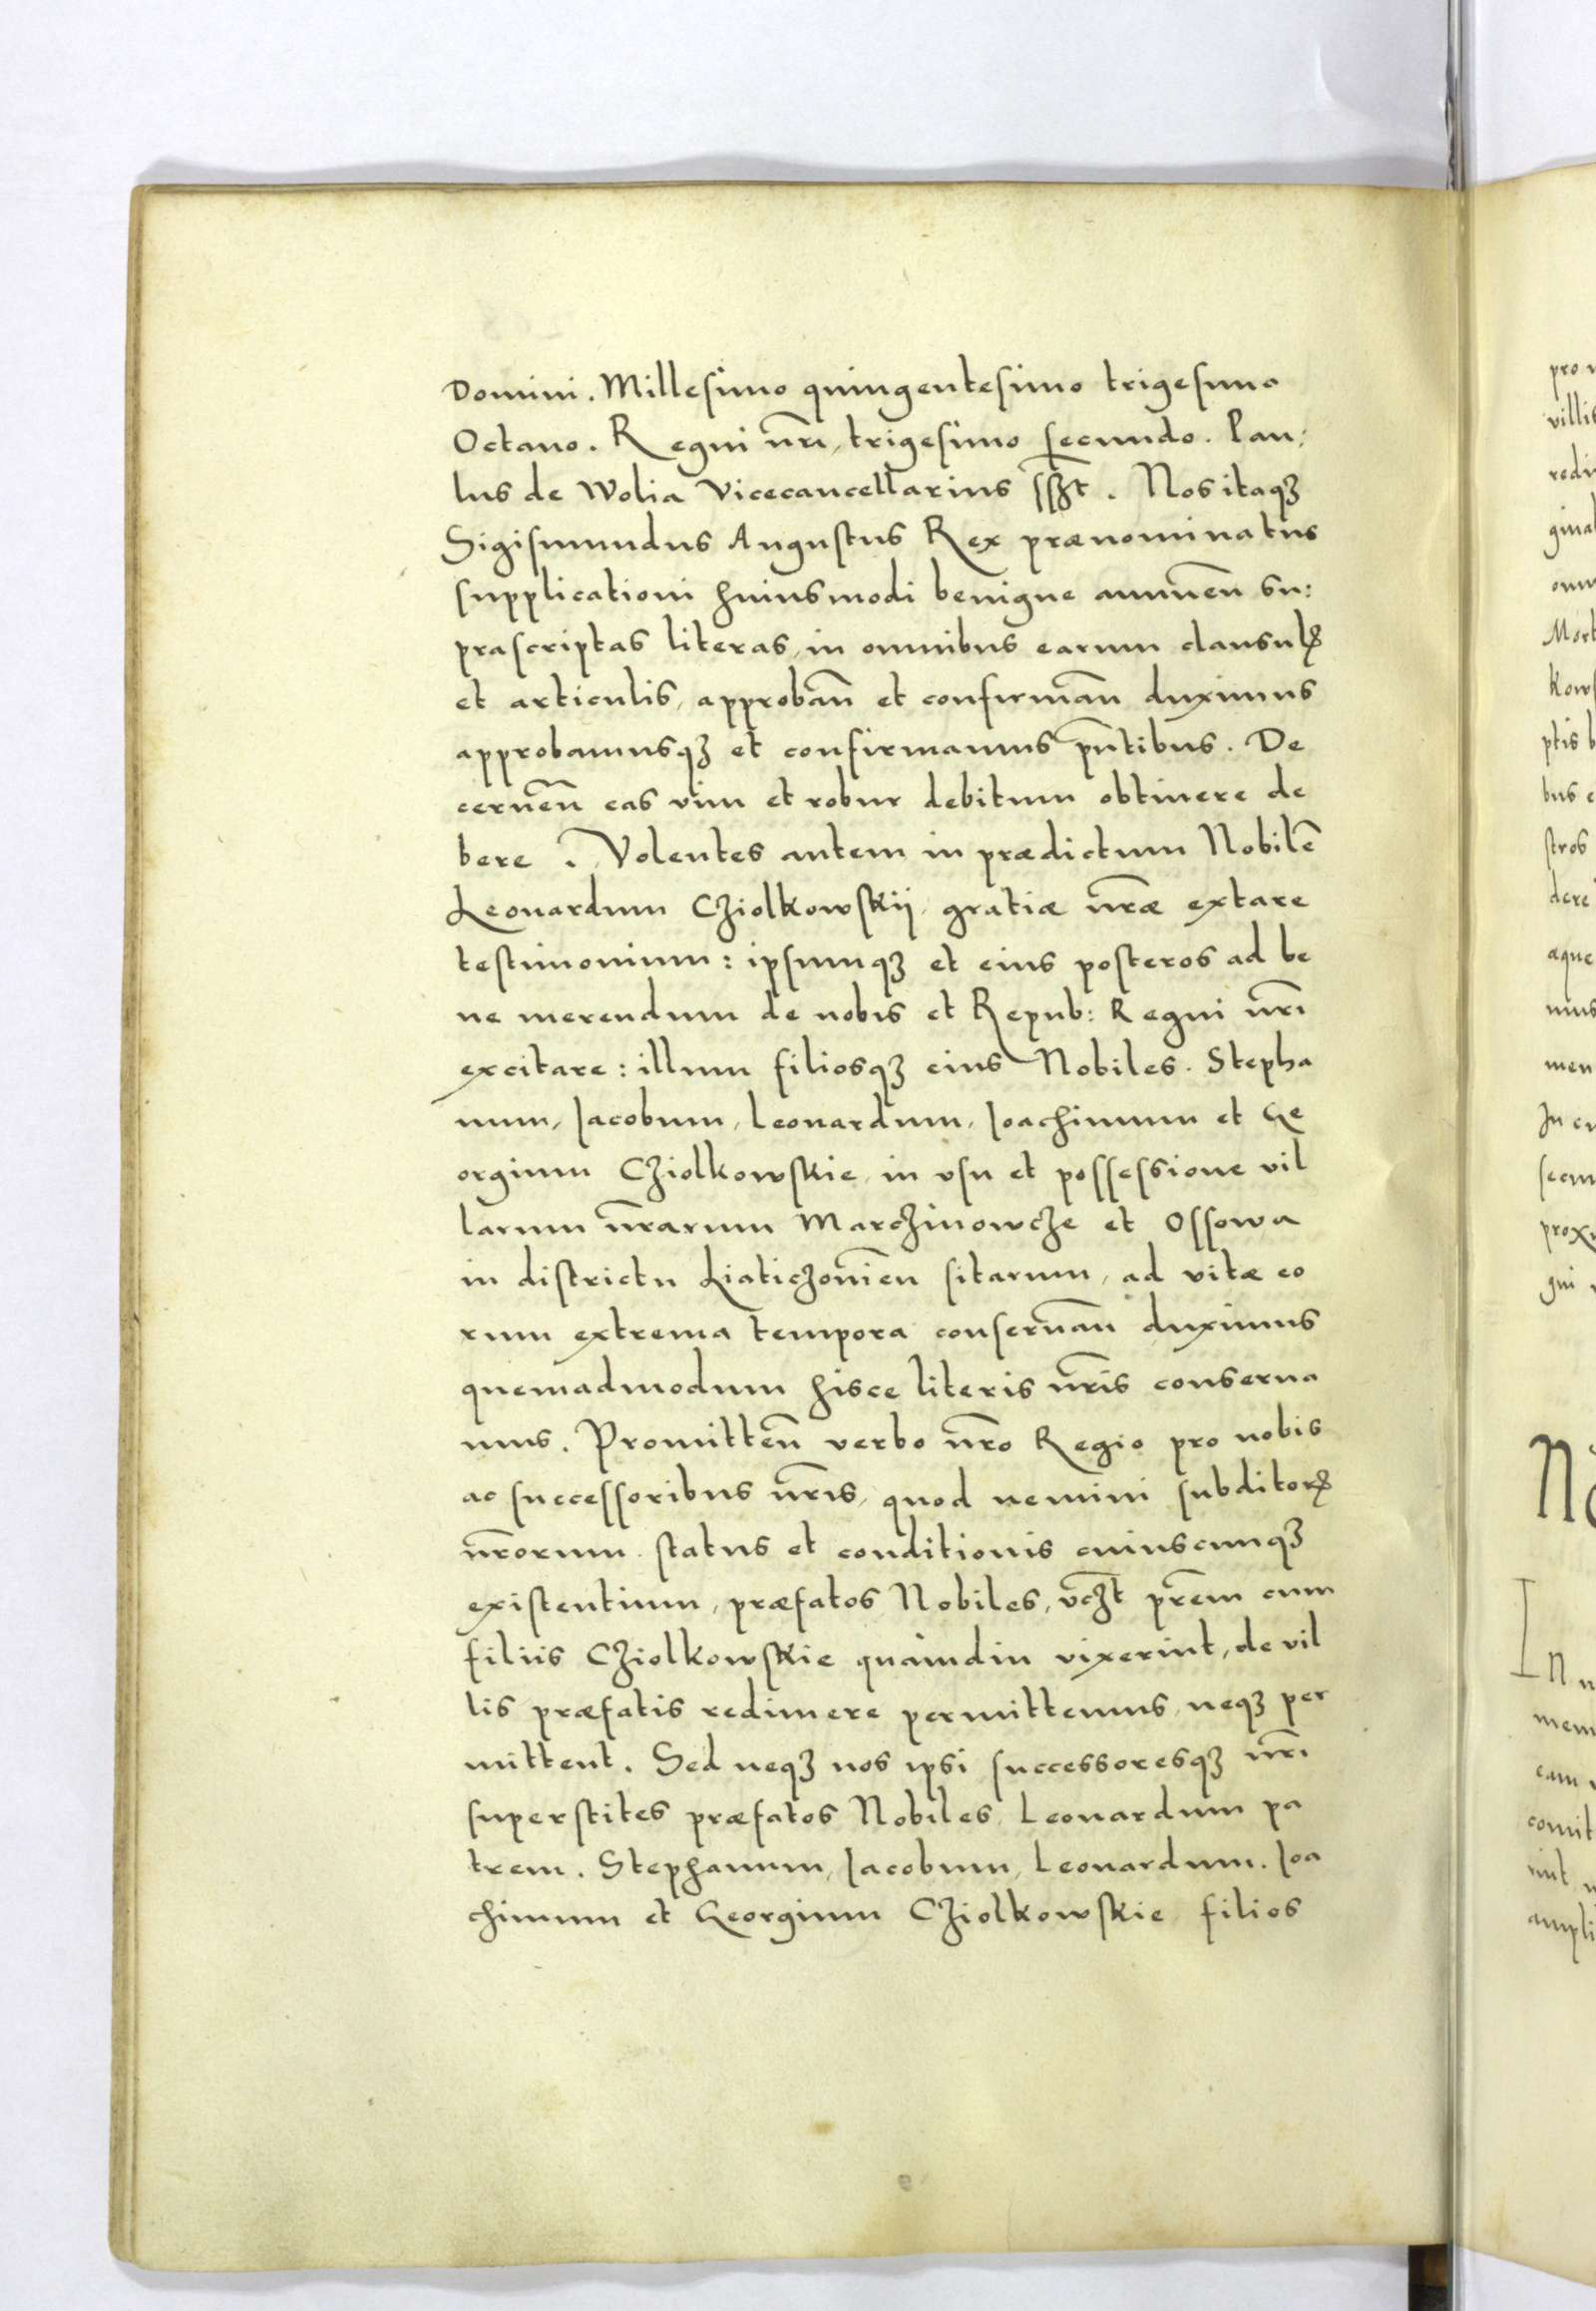 Domini. Millesimo quingentesimo trigesimo
Octauo. Regni nr̄i, trigesimo secundo. Pau:
lus de Wolia Vicecancellarius sszt. Nos itaqꝫ
Sigismundus Augustus Rex prænominatus
supplicationi huiusmodi benigne annuen̄ su:
prascriptas literas, in omnibus earum clausulꝭ
et articulis, approban̄ et confirman̄ duximus
approbamusqꝫ et confirmamus pn̄tibus. De
cernen̄ eas vim et robur debitum obtinere de
bere. Volentes autem in prædictum Nobilē
Leonardum Cziolkowskij, gratiæ nr̄æ extare
testimonium: ipsumqꝫ et eius posteros ad be
ne merendum de nobis et Repub: Regni nr̄i
excitare: illum filiosqꝫ eius Nobiles. Stepha
num, Iacobum, Leonardum, Ioachimum et Ge
orgium Cziolkowskie, in vsu et possessione vil
larum nr̄arum Marczinowcze et Ossowa
in districtu Liaticzouien̄ sitarum, ad vitæ eo
rum extrema tempora conseruan̄ duximus
quemadmodum hisce literis nr̄is conserua
mus. Promitten̄ verbo nr̄o Regio pro nobis
ac successoribus nr̄is, quod nemini subditorꝝ
nr̄orum. status et conditionis cuiuscunqꝫ
existentium, præfatos Nobiles, vczt pr̄em cum
filiis Cziolkowskie quàmdiu vixerint, de vil
lis præfatis redimere permittemus, neqꝫ per
mittent. Sed neqꝫ nos ipsi successoresqꝫ nr̄i
superstites præfatos Nobiles, Leonardum pa
trem. Stephanum, Iacobum, Leonardum. Ioa
chimum et Georgium Cziolkowskie, filios